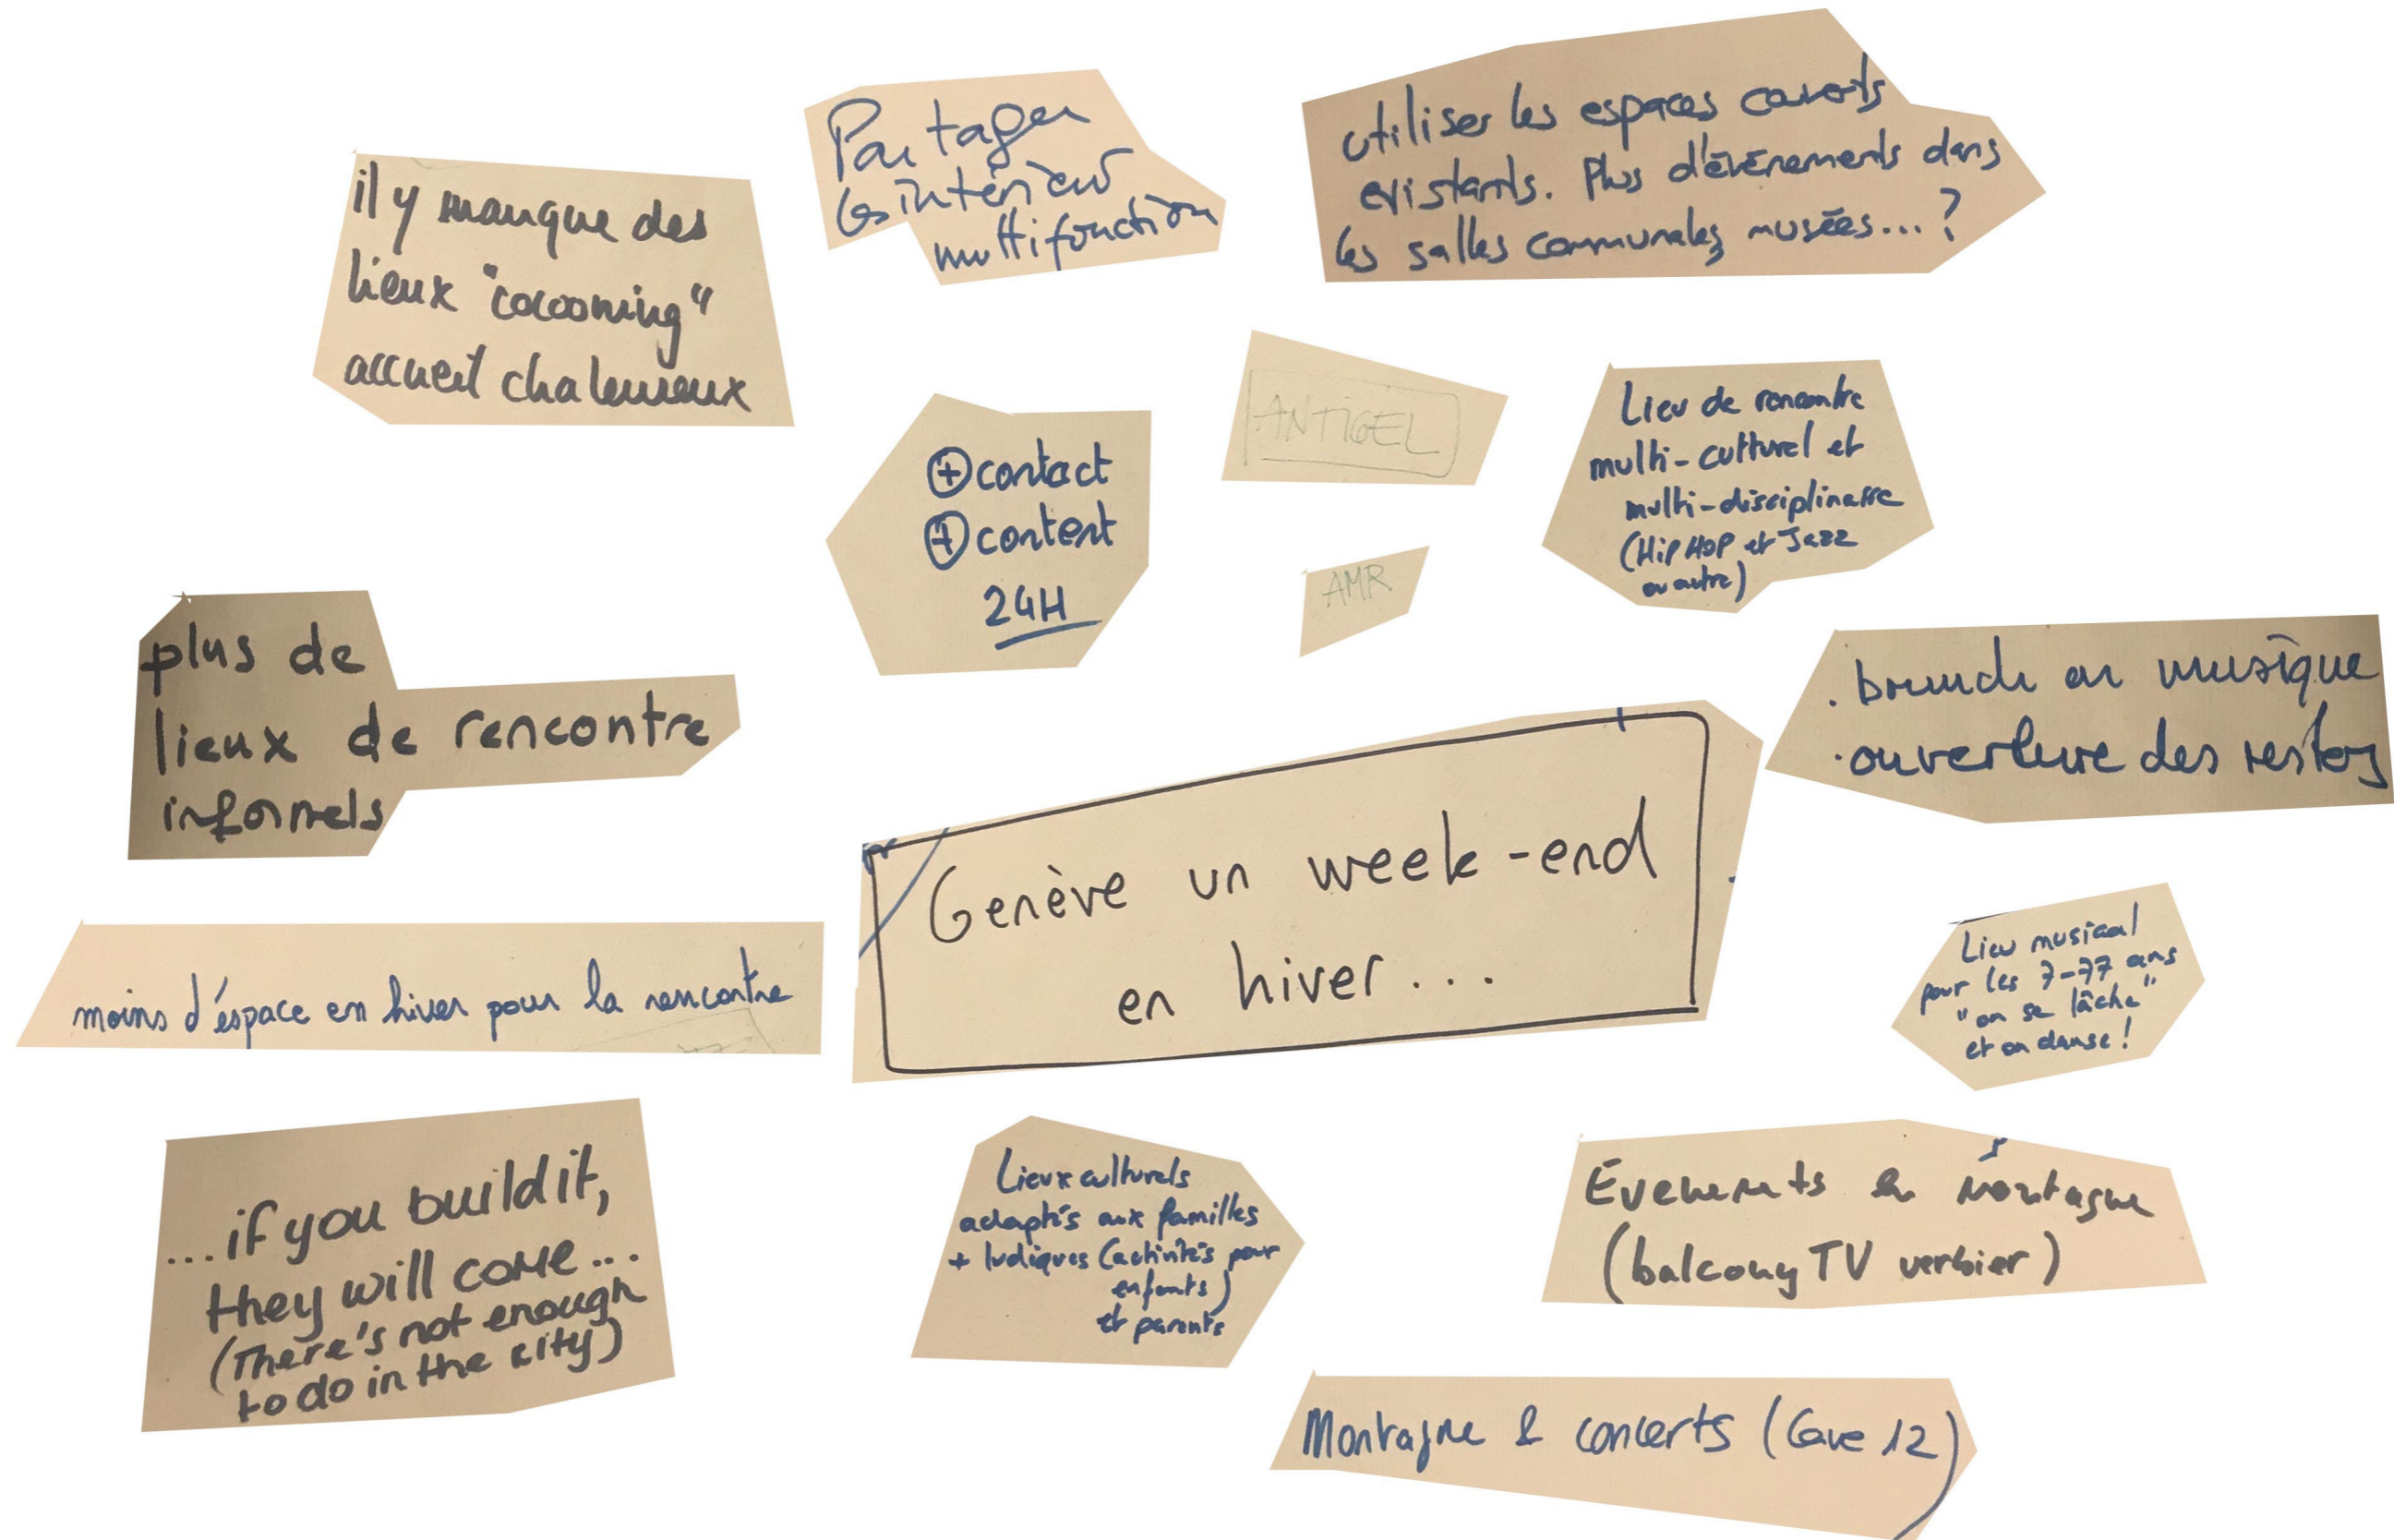 il y manque des
lieux "cocooning"
accueil chaleureux
Partager
les intérieur
multifonction
utiliser les espaces couverts
existants. Plus d'évènements dans
les salles communales, musées...?
⊕ contact
⊕ content
24H
ANTIGEL
AMR
Lieu de rencontre
multi-culturel et
multi-disciplinaire
(Hip Hop et Jazz
ou autre)
plus de
lieux de rencontre
informels
. brunch en musique
. ouverture des restos
Genève un week-end
en hiver...
moins d'éspace en hiver pour la rencontre
Lieu musical
pour les 7-77 ans
"on se lâche"
et on danse!
...if you build it,
they will come...
(There's not enough
to do in the city)
Lieux culturels
adaptés aux familles
+ ludiques (activités pour
enfants)
et parents
Évenements en Montagne
(balcony TV verbier)
Montagne & concerts (Cave 12)